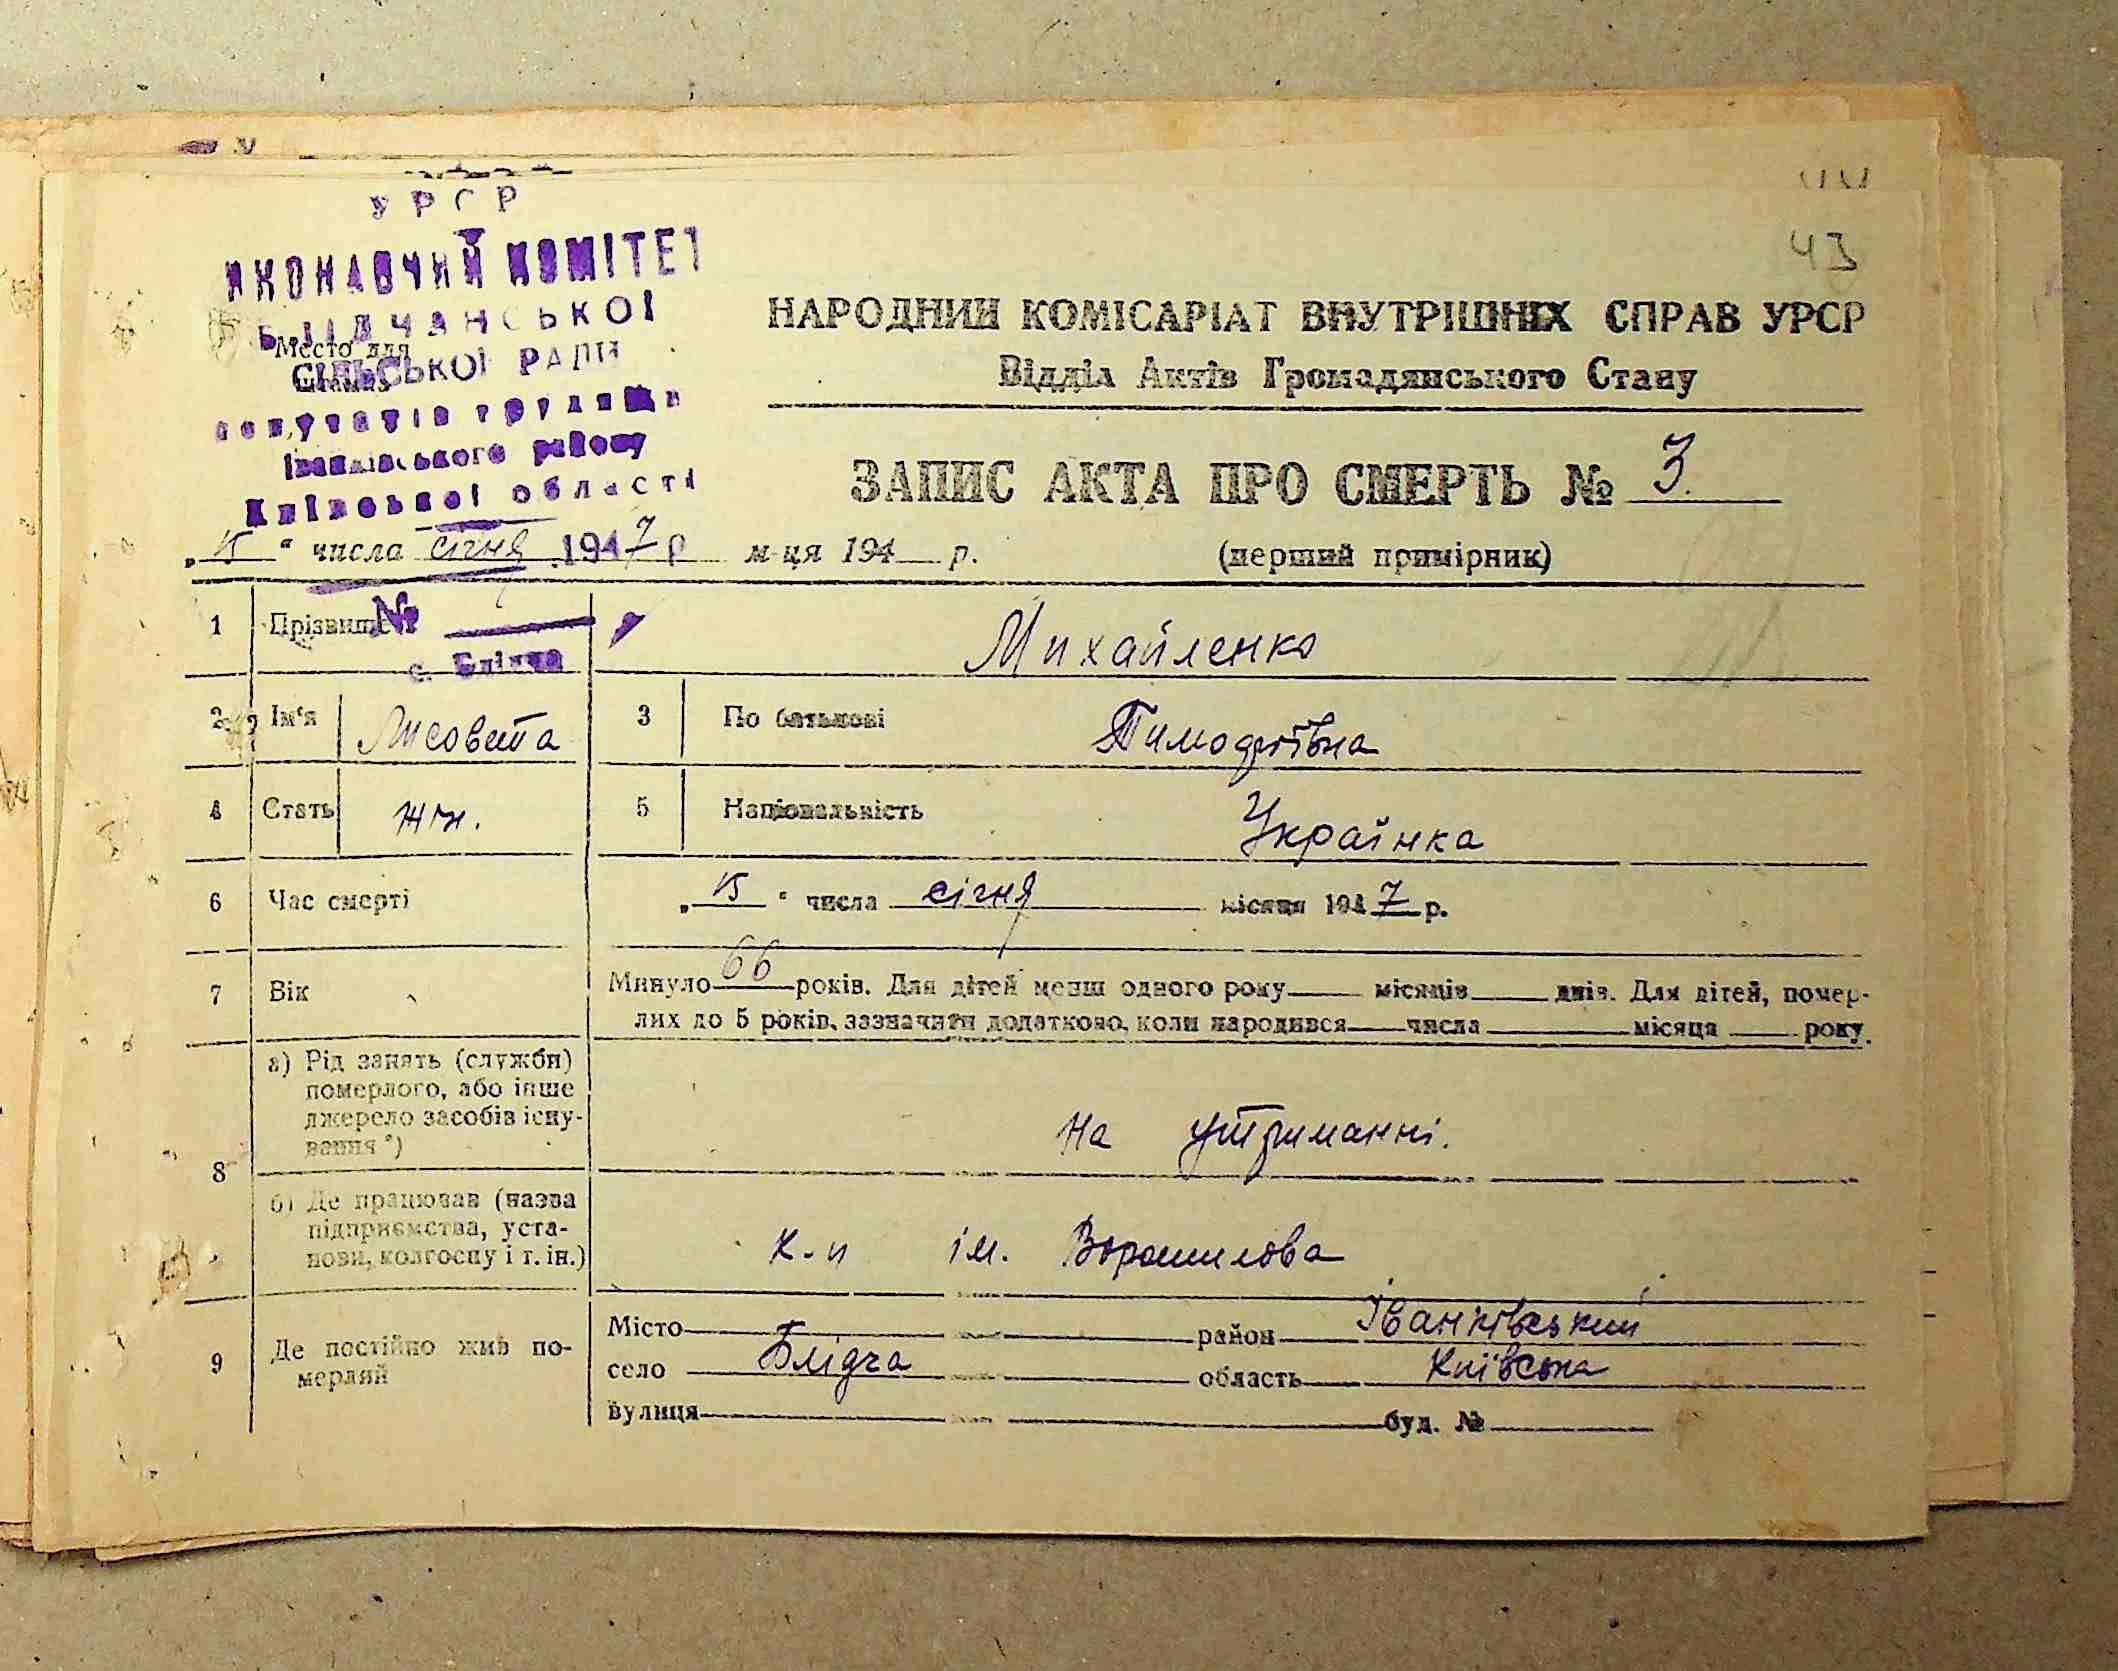 44
43
УРСР
ИКОНАВЧИЙ КОМІТЕТ
БЛІДЧАНСЬКОЇ
Место для
СІЛЬСЬКОЇ РАДИ
штампа
депутатів трудящ
Іванківського району
Київської області
"15" числа січня 1947 р м-ця 194 р.
№
с. Блідча
НАРОДНИЙ КОМІСАРІАТ ВНУТРІШНІХ СПРАВ УРСР
Відділ Актів Громадянського Стану
ЗАПИС АКТА ПРО СМЕРТЬ № 3.
(перший примірник)
1 Прізвище Михайленко
2 Ім'я Лисовета 3 По батькові Тимофіївна
4 Стать жін. 5 Національність Українка
6 Час смерті "15" числа січня місяця 1947 р.
7 Вік Минуло 66 років. Для дітей менш одного року місяців днів. Для дітей, помер-
лих до 5 років, зазначити додатково, коли народився числа місяця року.
8 а) Рід занять (служби)
померлого, або інше
джерело засобів існу-
вання*) На утриманні.
б) Де працював (назва
підприємства, уста-
нови, колгоспу і т. ін.) к-п ім. Ворошилова
9 Де постійно жив по-
мерлий
Місто район Іванківський
село Блідча область Київська
вулиця буд. №